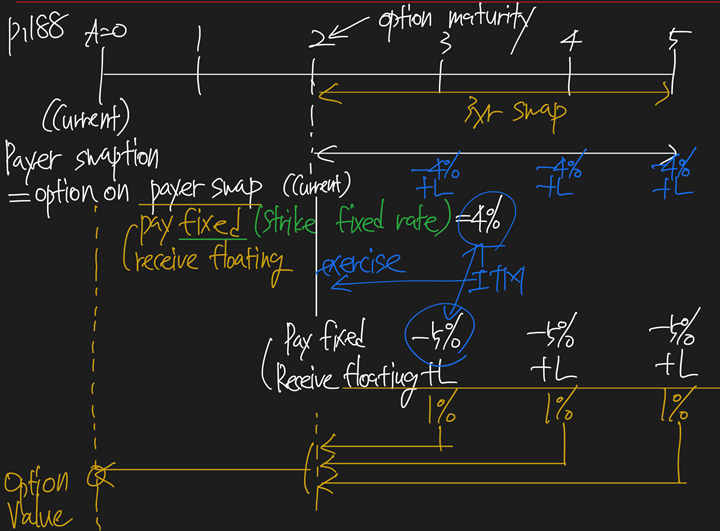 p.188 A=0 1 2 option maturity 3 4 5
3yr swap
(Current)
Payer swaption
= option on payer swap (Current)
-4% -4% -4%
+L +L +L
pay fixed (strike fixed rate) = 4%
receive floating
exercise ITM
Pay fixed -5% -5% -5%
Receive floating +L +L +L
1% 1% 1%
option
value